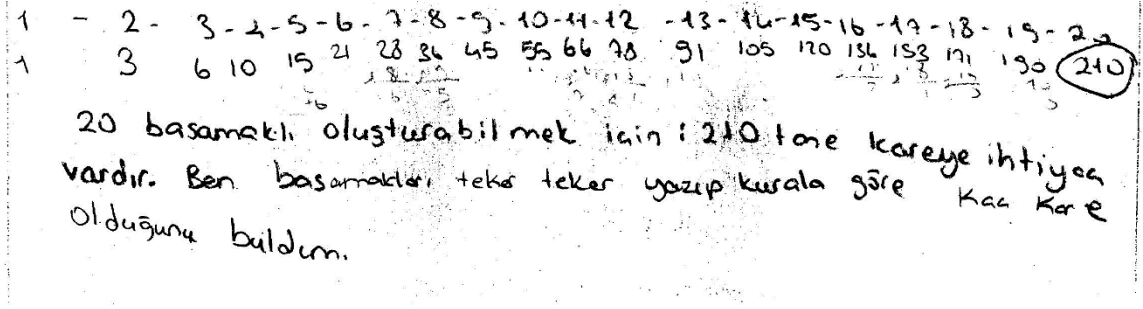 1 - 2 - 3 - 4 - 5 - 6 - 7 - 8 - 9 - 10 - 11 - 12 - 13 - 14 - 15 - 16 - 17 - 18 - 19 - 20
1 3 6 10 15 21 28 36 45 55 66 78 91 105 120 136 153 171 190 210
20 basamaklı oluşturabilmek için : 210 tane kareye ihtiyaç
vardır. Ben basamakları teker teker yazıp kurala göre kaç kare
olduğunu buldum.